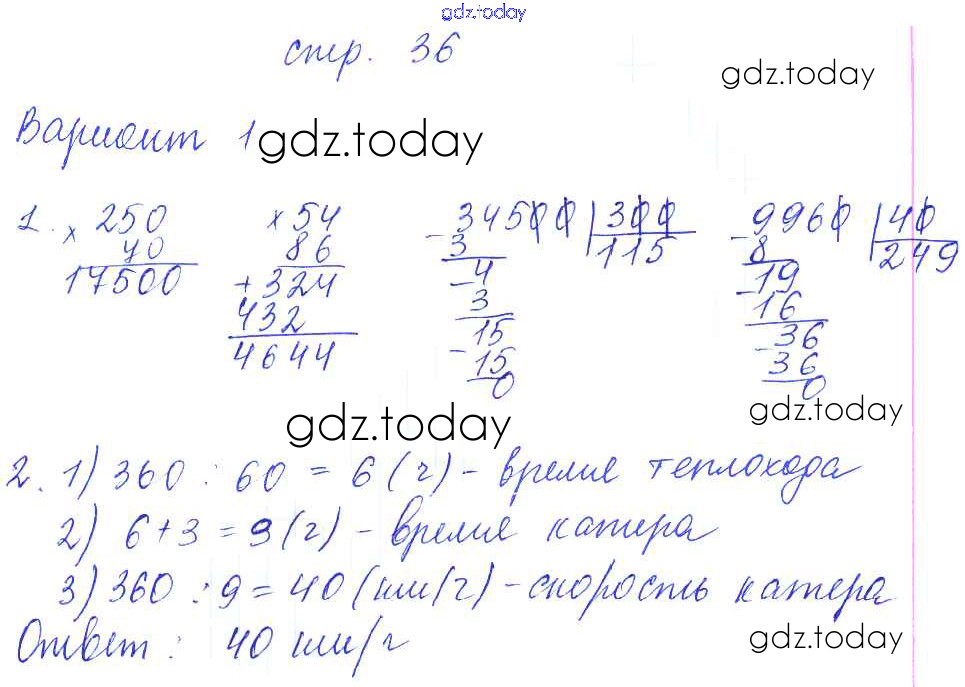 gdz.today
стр. 36
gdz.today
Вариант 1 gdz.today
1. × 250 × 54 - 34500 | 300 - 9960 | 40
70 86 3 115 8 249
17500 + 324 - 4 - 19
432 3 16
4644 15 - 36
- 15 36
0 0
gdz.today gdz.today
2. 1) 360 : 60 = 6 (ч) - время теплохода
2) 6 + 3 = 9 (ч) - время катера
3) 360 : 9 = 40 (км/ч) - скорость катера
Ответ : 40 км/ч
gdz.today